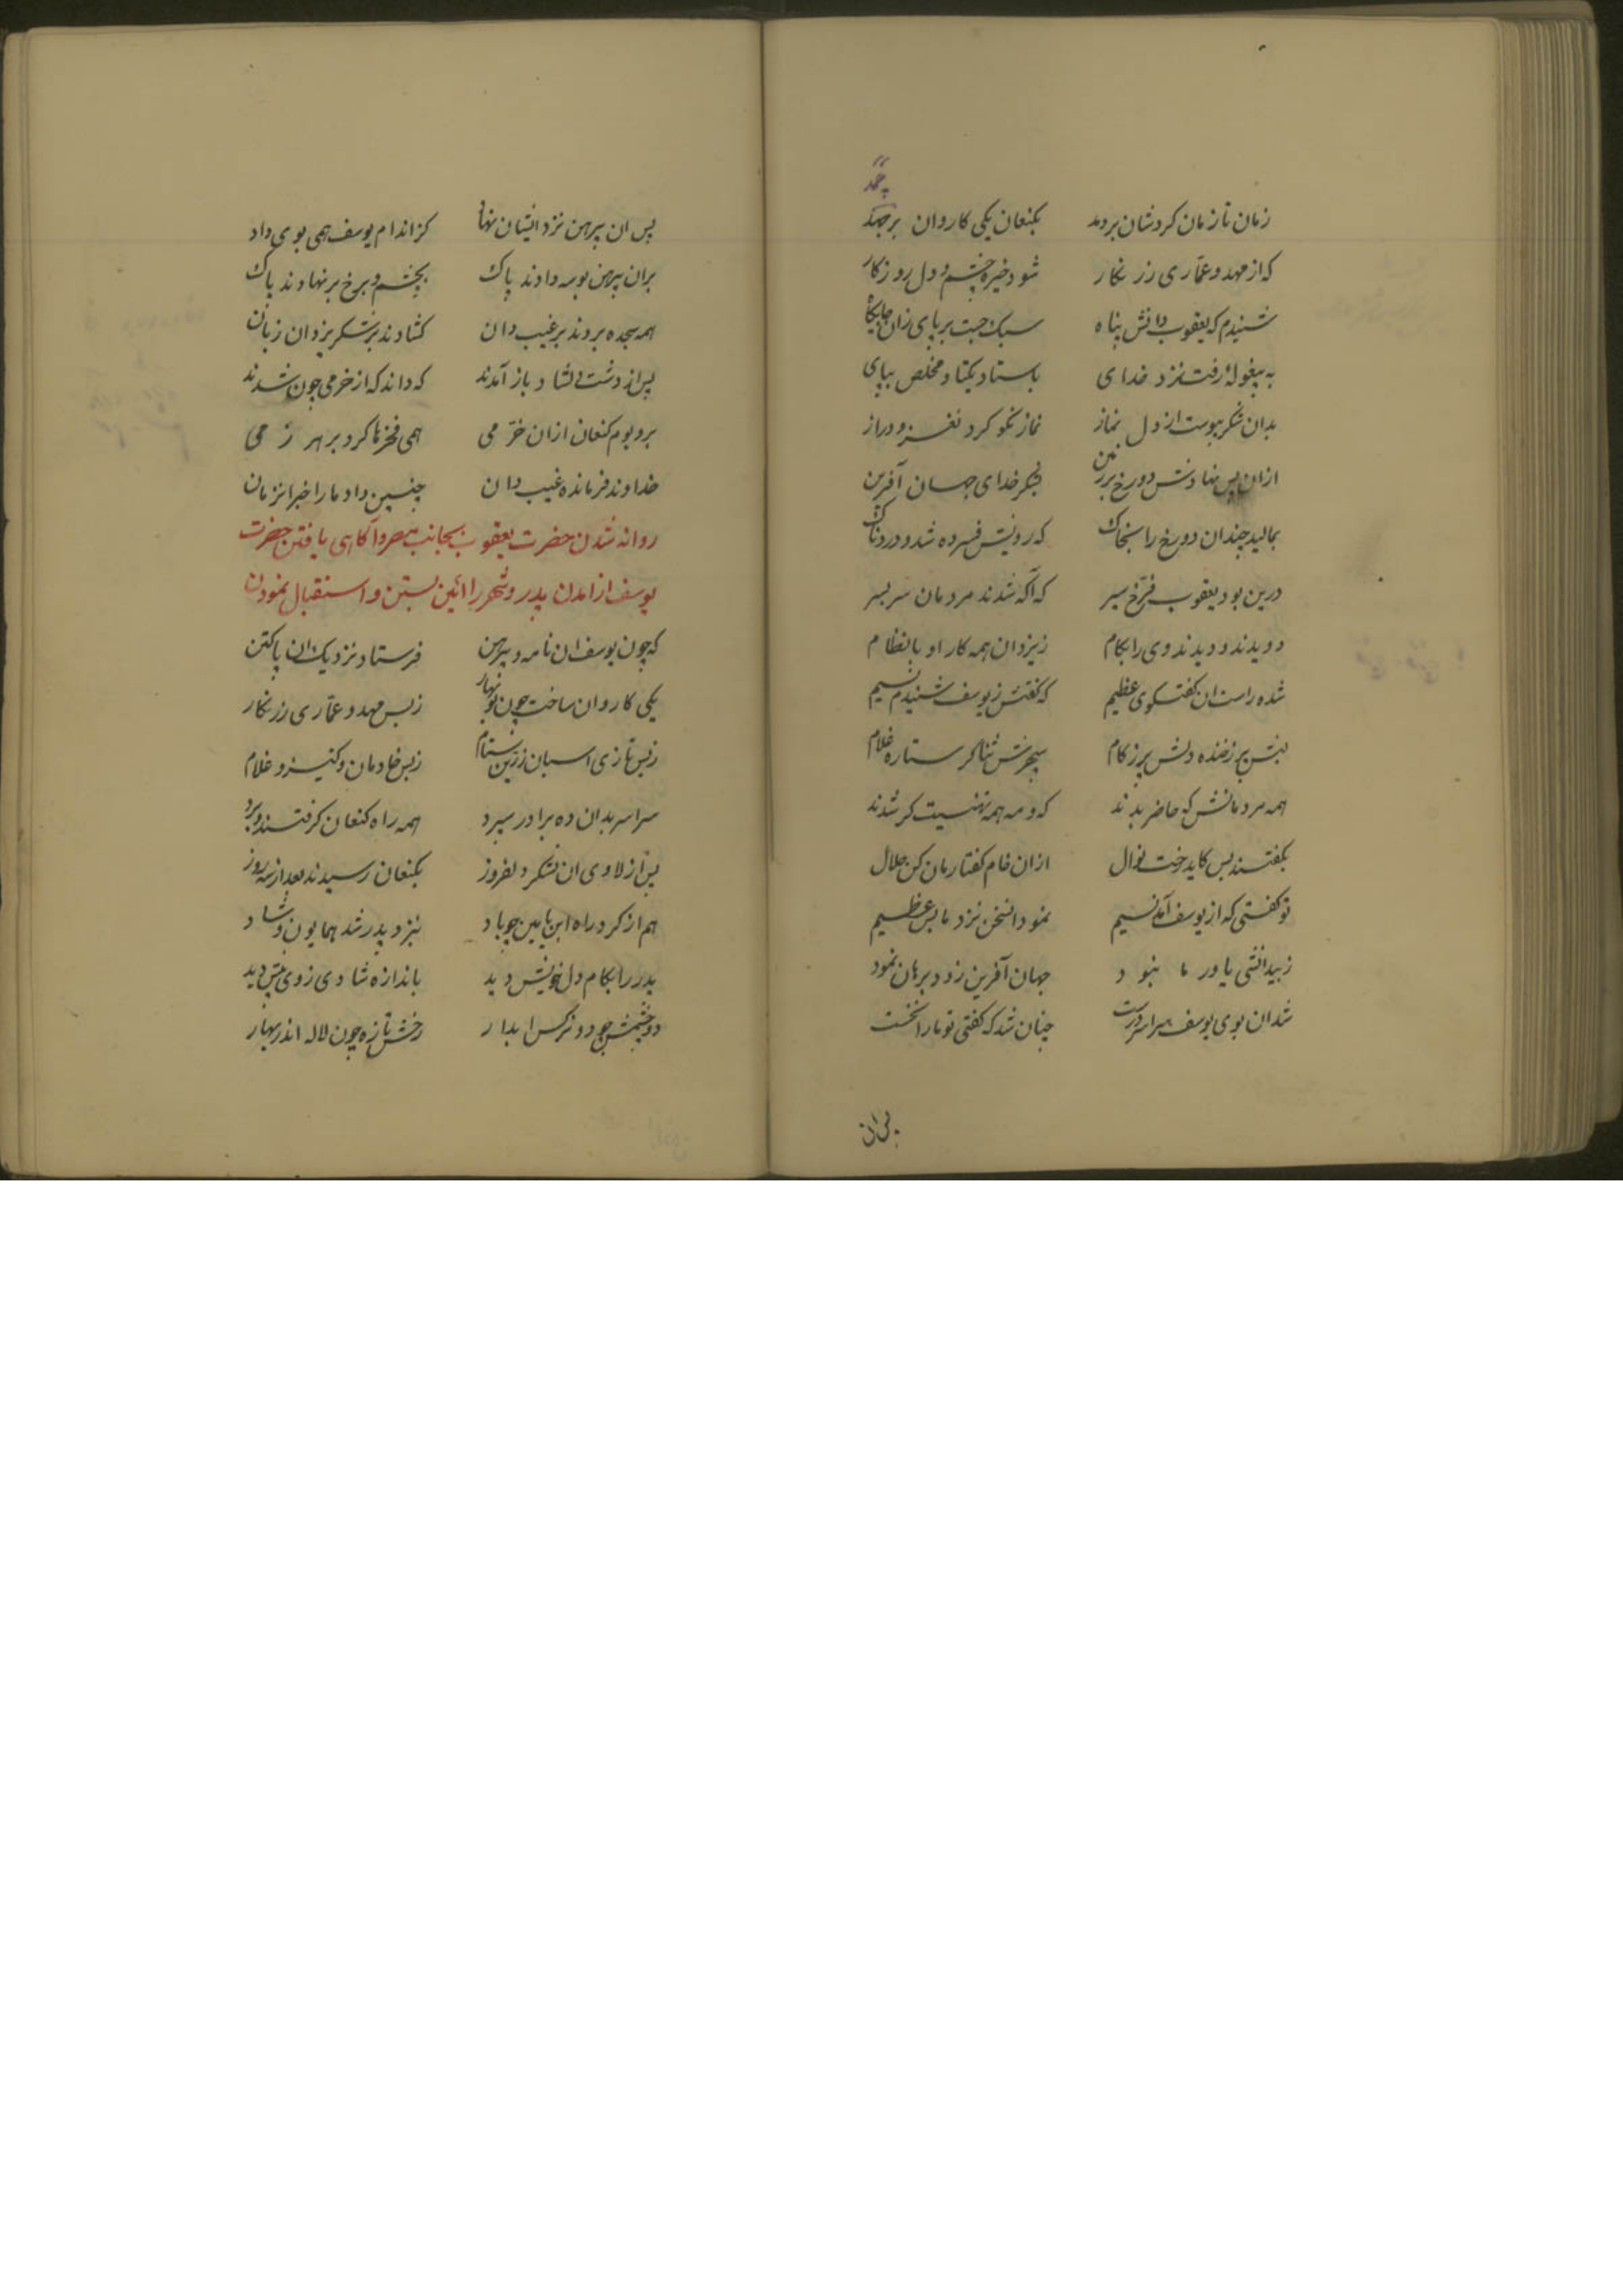 چمد
زمان تا زمان کردشان بر ومد بکنعان یکی کاروان بر جهد
که از مهد و عماری زر نکار شود خیره چشم و دل روزکار
شنیدم که یعقوب دانش پناه سبک جست بر پای زان جایکاه
به بیغولهٔ رفت نزد خدای باستاد یکتا و مخلص بپای
بدان شکر پیوست از دل نماز نماز نکو کرد نغز و دراز
ازان پس نهادش دو رخ بر زمین بشکر خدای جهان آفرین
بمالید چندان دو رخ را بخاک که رویش فسرده شد و دردناک
درین بود یعقوب فرخ سیر که آکه شدند مردمان سر بسر
دویدند و دیدند وی را بکام ز یزدان همه کار او با نظام
شده راست ان کفتکوی عظیم که کفتش ز یوسف شنیدم نسیم
لبش پر ز خنده دلش پر ز کام سپهرش ثنا کر ستاره غلام
همه مردمانش که حاضر بدند که و مه همه تهنیت کر شدند
بکفتند بس کاید رخت نوال ازان خام کفتارمان کن حلال
تو کفتی که از یوسف آمد نسیم نمود انسخن نزد ما بس عظیم
ز بیدانشی یاور ما نبود جهان آفرین زود برهان نمود
شد ان بوی یوسف سراسر درست چنان شد که کفتی تو ما را نخست
پس ان
پس ان پیرهن نزد ایشان نهاد کز اندام یوسف همی بوی داد
بران پیرهن بوسه دادند پاک بچشم و برخ بر نهادند پاک
همه سجده بردند بر غیب دان کشادند بر شکر یزدان زبان
پس از دشت دلشاد باز آمدند که داند که از خرمی چون شدند
بر و بوم کنعان ازان خرمی همی فخرها کرد بر هر زمی
خداوند فرمانده غیب دان چنین داد ما را خبر انزمان
روانه شدن حضرت یعقوب بجانب مصر و آکاهی یافتن حضرت
یوسف از امدن پدر و شهر را ائین بستن و استقبال نمودن
که چون یوسف ان نامه و پیرهن فرستاد نزدیک ان پاکتن
یکی کاروان ساخت چون نوبهار ز بس مهد و عماری زر نکار
ز بس تازی اسبان زرین ستام ز بس خادمان و کنیز و غلام
سراسر بدان ده برادر سپرد همه راه کنعان کرفتند و برد
پس از لاوی ان لشکر دلفروز بکنعان رسیدند بعد از سه روز
هم از کرد راه ابن یامین چو باد بنزد پدر شد همایون و شاد
پدر را بکام دل خویش دید باندازه شادی ز وی بیش دید
دو چشمش چو دو نرکس ابدار رخش تازه چون لاله اندر بهار